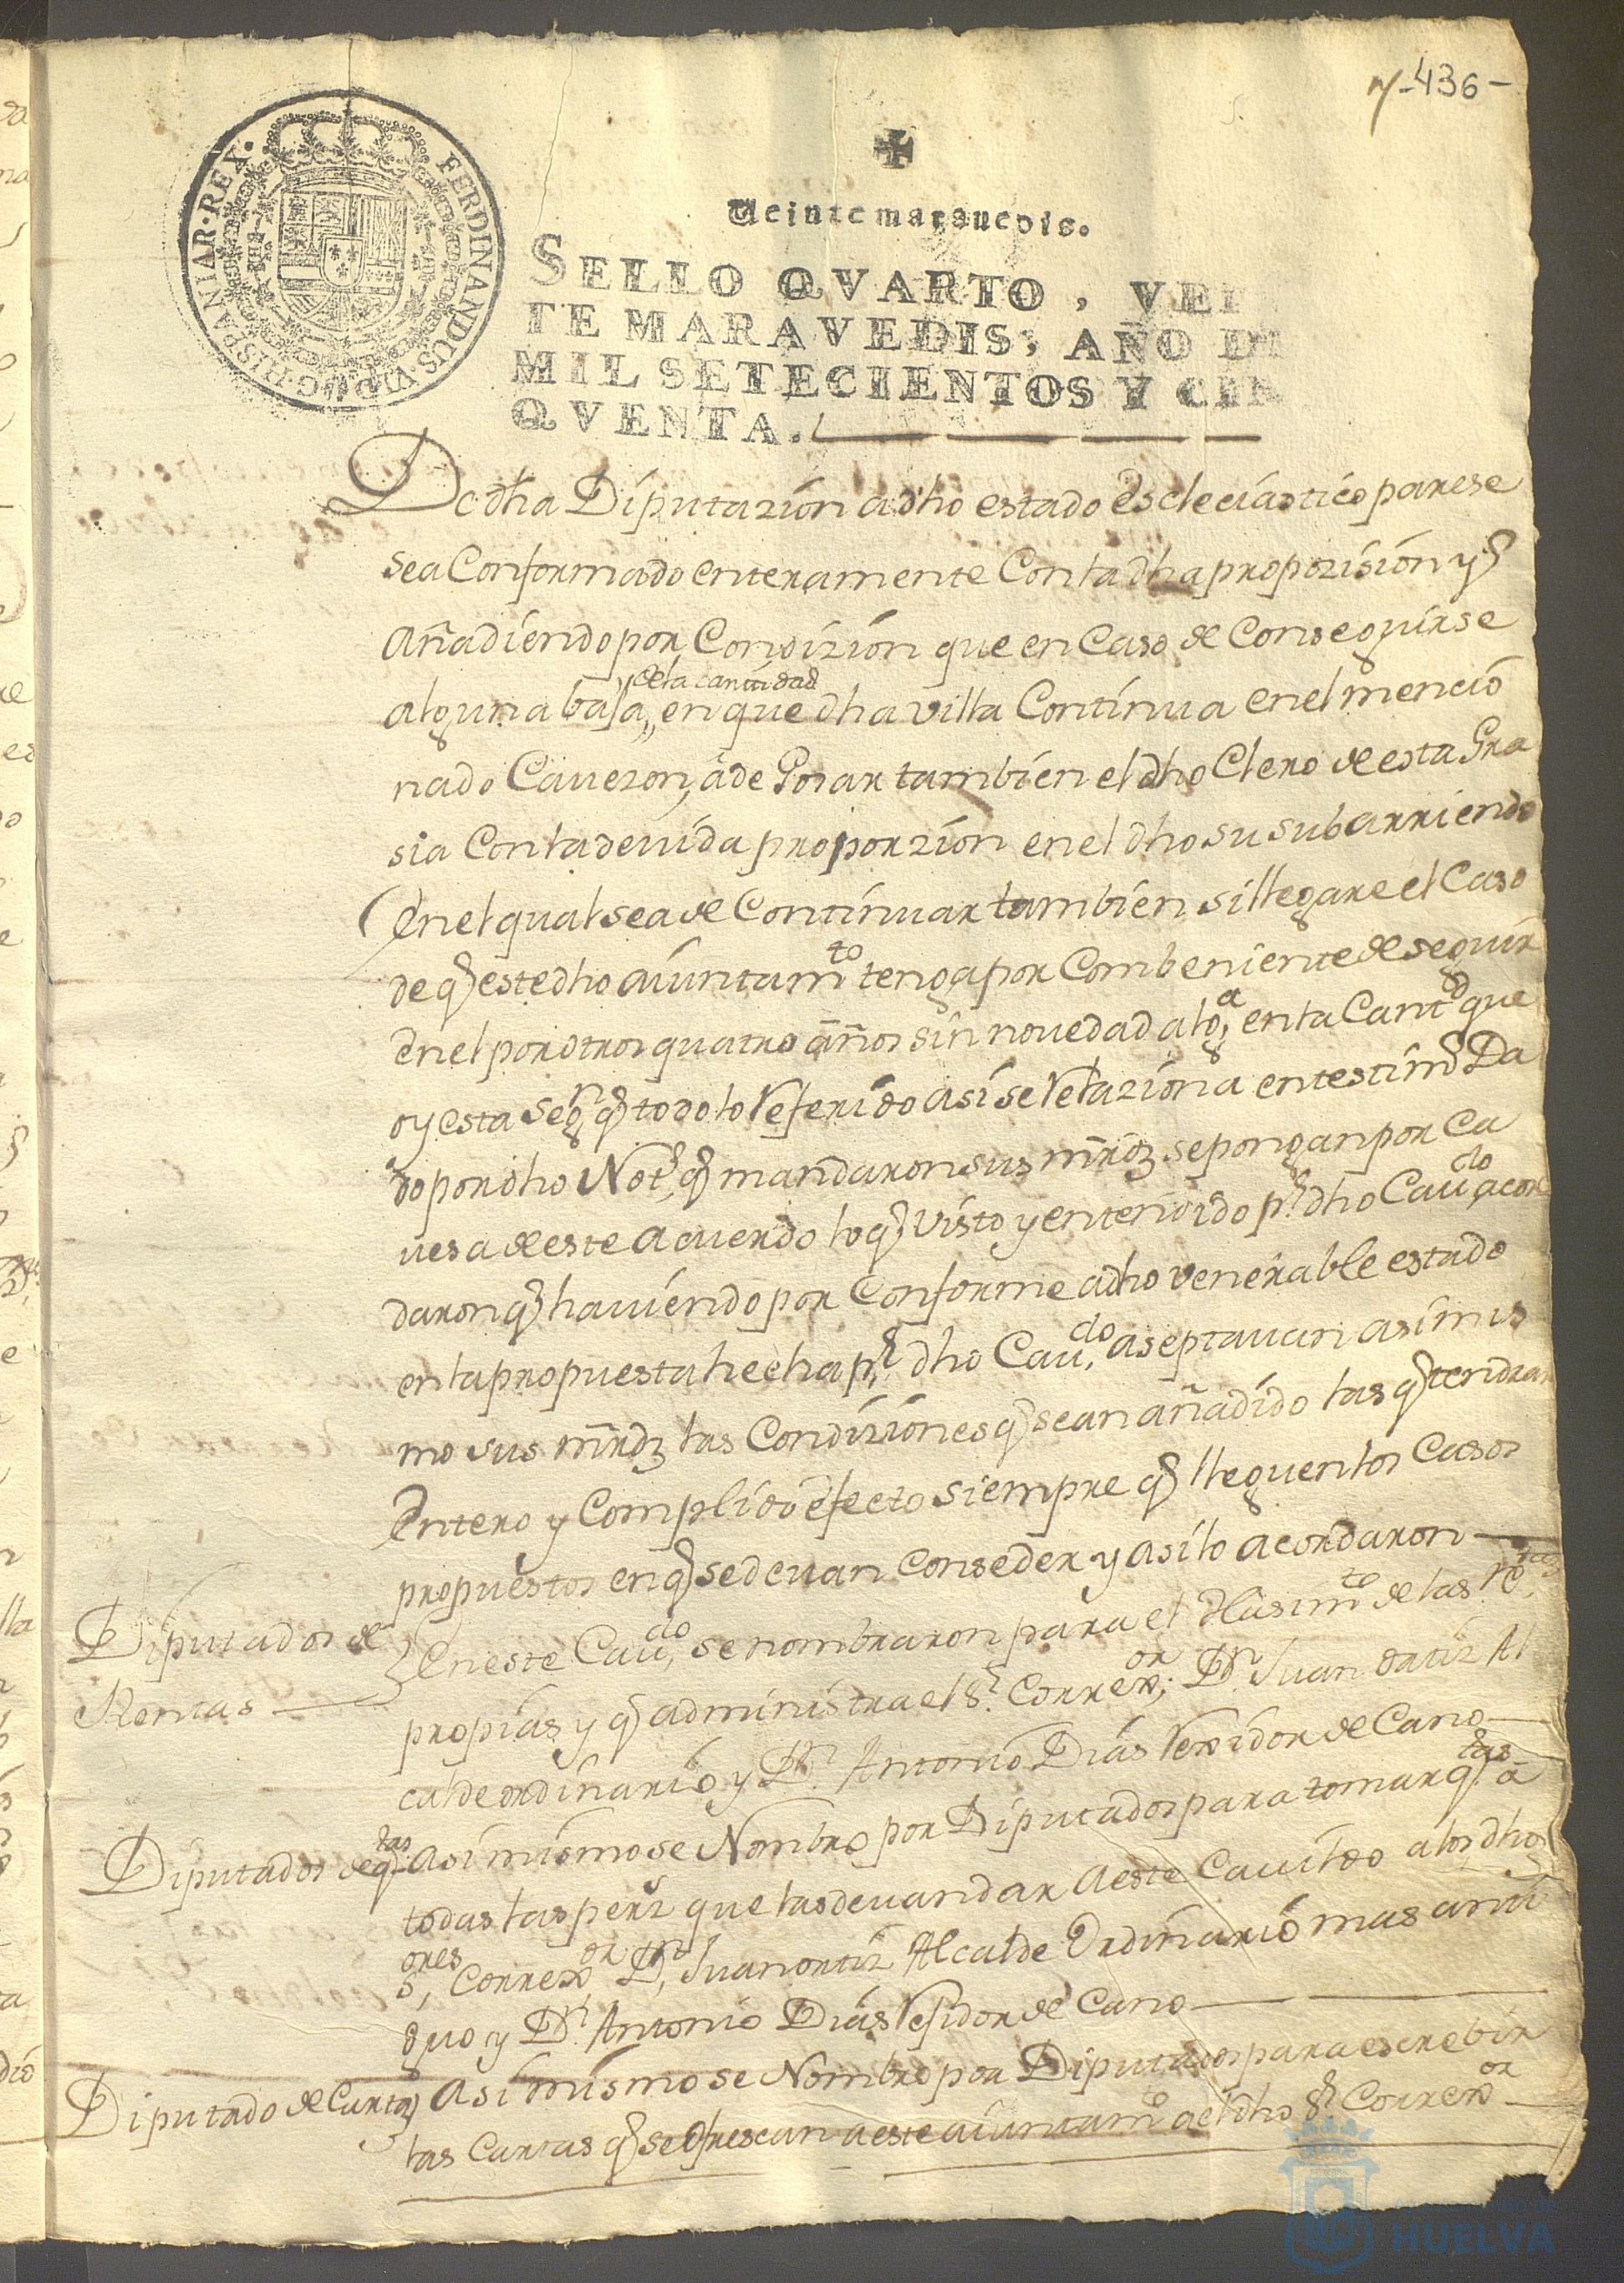 7-436-
FERDINANDUS·VI·D·G·HISPANIAR·REX·
Veinte maravedis.
SELLO QVARTO, VEI
TE MARAVEDIS, AÑO DE
MIL SETECIENTOS Y CIN
QVENTA.
De dha Diputazion a dho estado Escleciastico parese
sea Conformado enteramente Con la dha propozision y
Añadiendo por Condizion que en Caso de Conseguirse
alguna baja de la cantidad en que dha villa Continua en el mencio
nado Cavezon, à de Gosar tambien el dho Clero de esta Gra
sia Con la devida proporzion en el dho su subarriendo
En el qual sea de Continuar tambien si llegare el Caso
de q este dho aiuntamto tenga por Combeniente de seguir
en el por otros quatro años sin novedad alga, en la Cantd que
oy esta segn q todo lo referido asi se relaziona en testimo Da
do por dho Noto, q mandaron sus mrdz se pongan por Ca
vesa de este acuerdo lo q visto y entendido pr dho Cavdo acor
daron q haviendo por Conforme a dho venerable estado
en la propuesta hecha pr dho Cavdo, aseptavan asimis
mo sus mrdz las Condiziones q sean añadido las q tendran
Entero y Complido efecto siempre q lleguen los Casos
propuestos en q se devan Conseder y asi lo acordaron
Diputados de
Rentas
En este Cavdo, se nombraron para el Hasimto de las
propias y q administra el Sr. Correxor; Dn. Juan ortiz Al
calde ordinario, y Dn. Antonio Dias Rexidor de Cano
Diputados de qtas
Asi mismo se Nombro por Diputados para tomar qtas a
todas las pers que las devan dar a este Cavildo a los dhos
Sores, Correxor Dn, Juan ortiz Alcalde Ordinario mas anti
guo y Dn. Antonio Dias Residor de Cano
Diputado de Cartas
Asi mismo se Nombro por Diputados para escrebir
las Cartas q se Ofrescan a este aiuntamto a el dho Sr Correxor
HUELVA